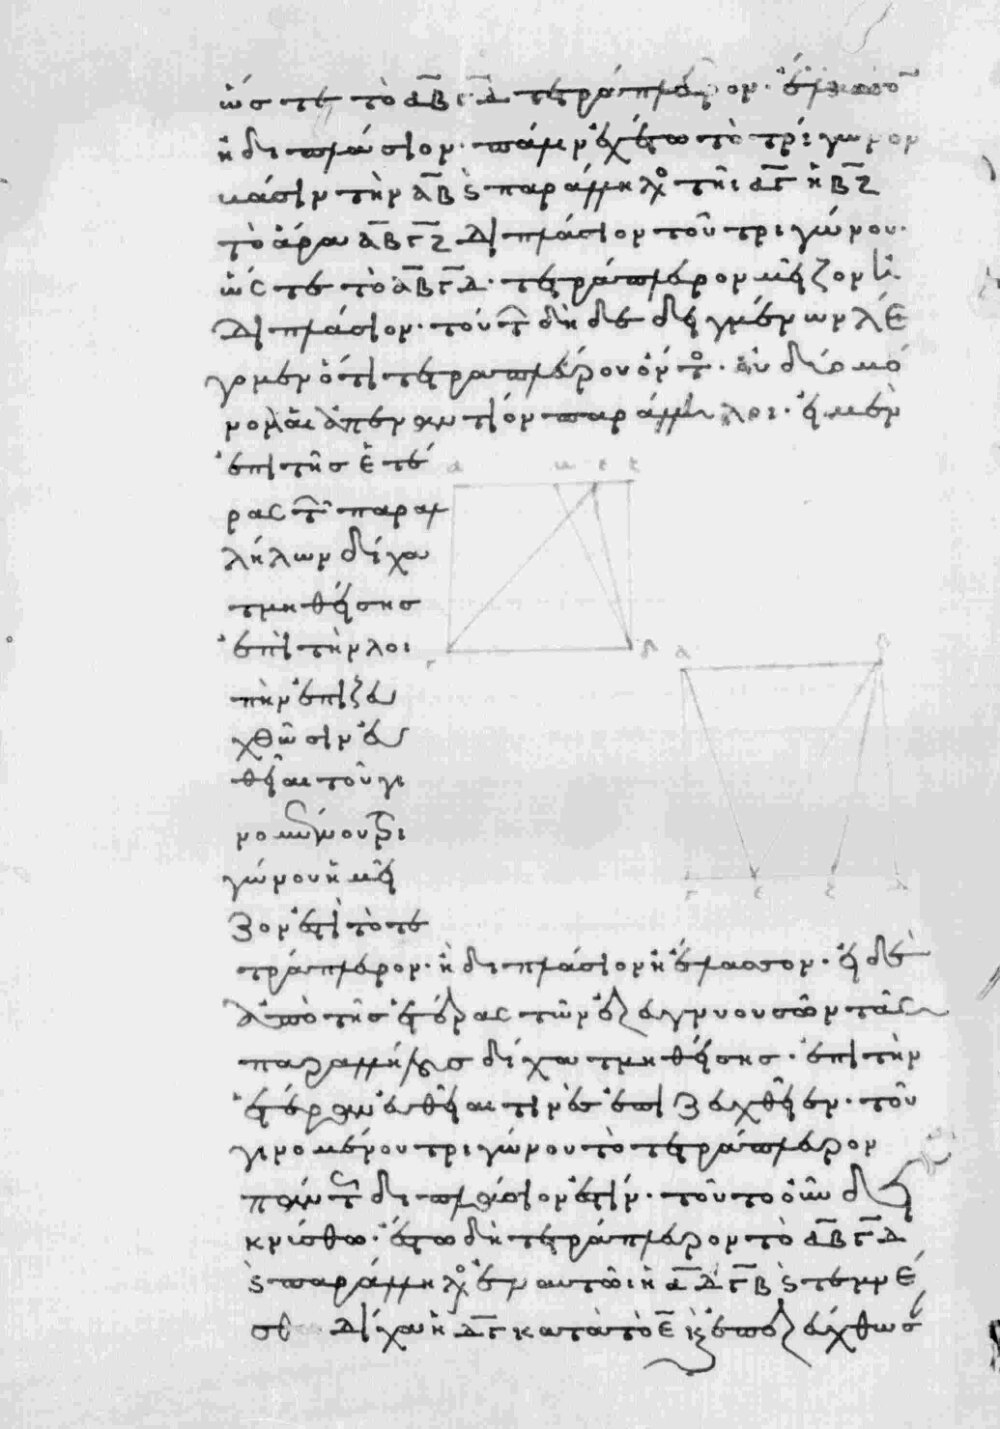 ὥστε τὸ ΑΒΓΔ τετράπλευρον ἔλασσον
ἢ διπλάσιον. πάλιν ἔστω τὸ τρίγωνον
βάσιν τὴν ΑΒ παράλληλος τῆι ΑΓ ἡ ΒΖ
τὸ ἄρα ΑΒΓΖ διπλάσιον τοῦ τριγώνου.
ὥστε τὸ ΑΒΓΔ τετράπλευρον μεῖζον ἢ
διπλάσιον. τούτων δὴ δεδειγμένων λέ
γομεν ὅτι τετραπλεύρου ὄντος οὗ δύο μό
νον αἱ ἀπεναντίον παράλληλοι. ἡ μὲν
ἐπὶ τῆς ἑτέ
ρας τῶν παραλ
λήλων δίχα
τμηθείσης
ἐπὶ τὴν λοι
πὴν ἐπιζευ
χθῶσιν εὐ
θεῖαι τοῦ γι
νομένου τρι
γώνου ἢ μεῖ
ζον ἐστὶ τὸ τε
τράπλευρον ἢ διπλάσιον ἢ ἔλασσον. εἰ δὲ
ἀπὸ τῆς ἑτέρας τῶν ἐπιζευγνυουσῶν τὰς
παραλλήλους δίχα τμηθείσης ἐπὶ τὴν
ἑτέραν εὐθεῖαι τινὲς ἐπιζευχθεῖεν τοῦ
γινομένου τριγώνου τὸ τετράπλευρον
πάντως διπλάσιον ἐστίν. τοῦτο οὖν δε
κνύσθω. ἔστω δὴ τετράπλευρον τὸ ΑΒΓΔ
καὶ παράλληλος ἐν αὐτῶι ἡ ΑΔ ΓΒ καὶ τετμή
σθω δίχα ἡ ΔΓ κατὰ τὸ Ε καὶ ἐπεζεύχθωσ